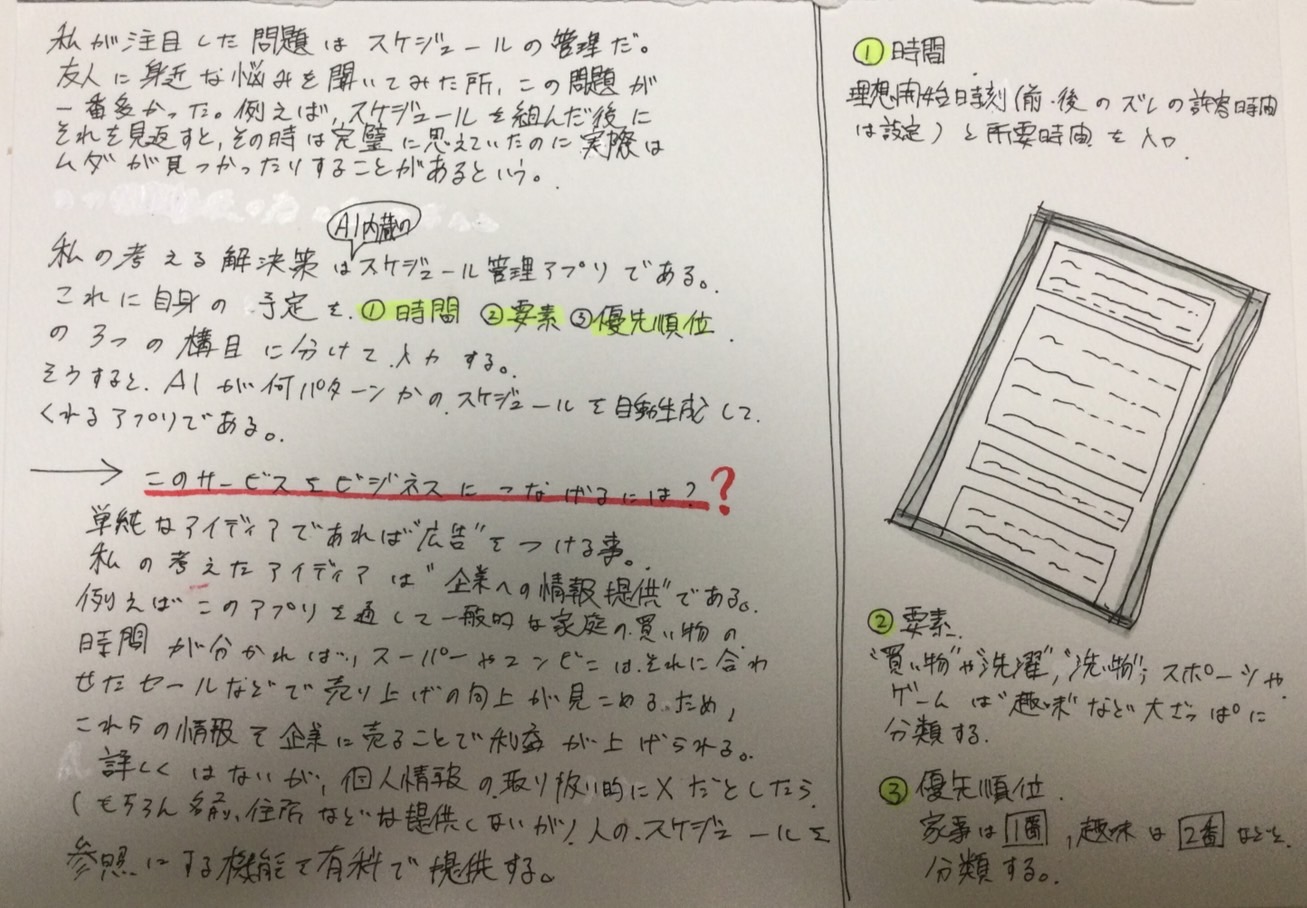 私が注目した問題はスケジュールの管理だ。
友人に身近な悩みを聞いてみた所、この問題が
一番多かった。例えば、スケジュールを組んだ後に
それを見返すと、その時は完璧に思えていたのに実際は
ムダが見つかったりすることがあるという。
AI内蔵の
私の考える解決策はスケジュール管理アプリである。
これに自身の予定を①時間 ②要素 ③優先順位
の3つの構目に分けて入力する。
そうすると、AIが何パターンかのスケジュールを自動生成して
くれるアプリである。
→ このサービスをビジネスにつなげるには??
単純なアイディアであれば"広告"をつける事。
私の考えたアイディアは"企業への情報提供"である。
例えばこのアプリを通して一般的な家庭の買い物の
時間が分かれば、スーパーやコンビニはそれに合わ
せたセールなどで売り上げの向上が見こめるため、
これらの情報を企業に売ることで利益が上げられる。
詳しくはないが、個人情報の取り扱い的に×だとしたら
(もちろん名前、住所などは提供しないが)人のスケジュールを
参照にする機能を有料で提供する。
① 時間
理想開始時刻(前・後のズレの許容時間
は設定)と所要時間を入力
② 要素
"買い物"や"洗濯","洗い物", スポーツや
ゲームは"趣味"など大ざっぱに
分類する.
③ 優先順位
家事は1番,趣味は2番などと
分類する。